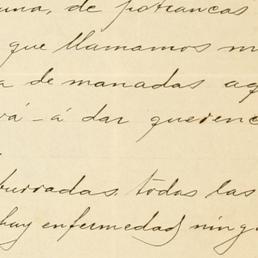 una, de potrancas
que llamamos m
a de manadas aq
rá - á dar queren
burradas. todas las
hay enfermedad) ning